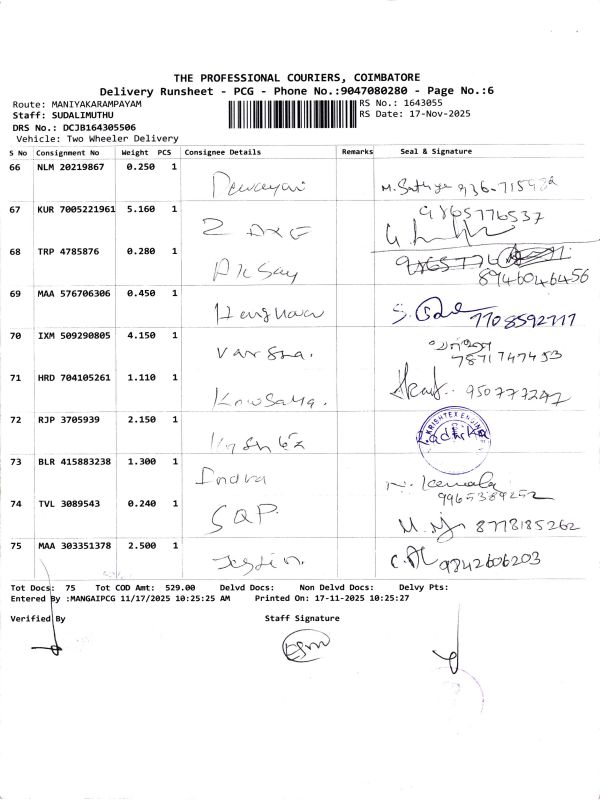 THE PROFESSIONAL COURIERS, COIMBATORE
Delivery Runsheet - PCG - Phone No.:9047080280 - Page No.:6
Route: MANIYAKARAMPAYAM
RS No.: 1643055
Staff: SUDALIMUTHU
RS Date: 17-Nov-2025
DRS No.: DCJB164305506
Vehicle: Two Wheeler Delivery
S No Consignment No Weight PCS Consignee Details Remarks Seal & Signature
66 NLM 20219867 0.250 1
67 KUR 7005221961 5.160 1 9865776537
68 TRP 4785876 0.280 1 Aksay 8946046456
69 MAA 576706306 0.450 1 7708592777
70 IXM 509290805 4.150 1 Varsha. 7871747453
71 HRD 704105261 1.110 1 Kowsalya. 950777247
72 RJP 3705939 2.150 1 KRISHTEX ENGINEE Radhika
73 BLR 415883238 1.300 1 Indra N. Kamala 9965389252
74 TVL 3089543 0.240 1 SQP. 8778185262
75 MAA 303351378 2.500 1 Jestin. 9842606203
Tot Docs: 75 Tot COD Amt: 529.00 Delvd Docs: Non Delvd Docs: Delvy Pts:
Entered By :MANGAIPCG 11/17/2025 10:25:25 AM Printed On: 17-11-2025 10:25:27
Verified By Staff Signature